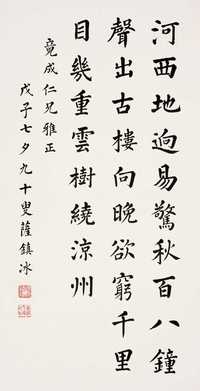 河西地迥易驚秋百八鐘
聲出古樓向晚欲窮千里
目幾重雲樹繞涼州
竟成仁兄雅正
戊子七夕九十叟薩鎮冰